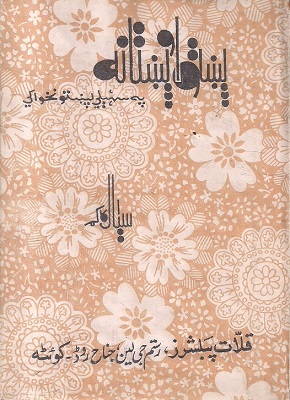 پښتو او پښتانه
په سهيلي پښتونخوا کي
سيال کاکړ
قلات پبلشرز، رستم جی لین، جناح روڈ۔ کوئٹہ